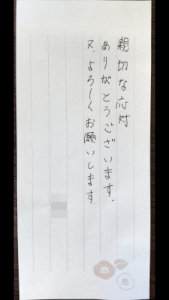 親切な応対
ありがとうございます.
又、よろしくお願いします